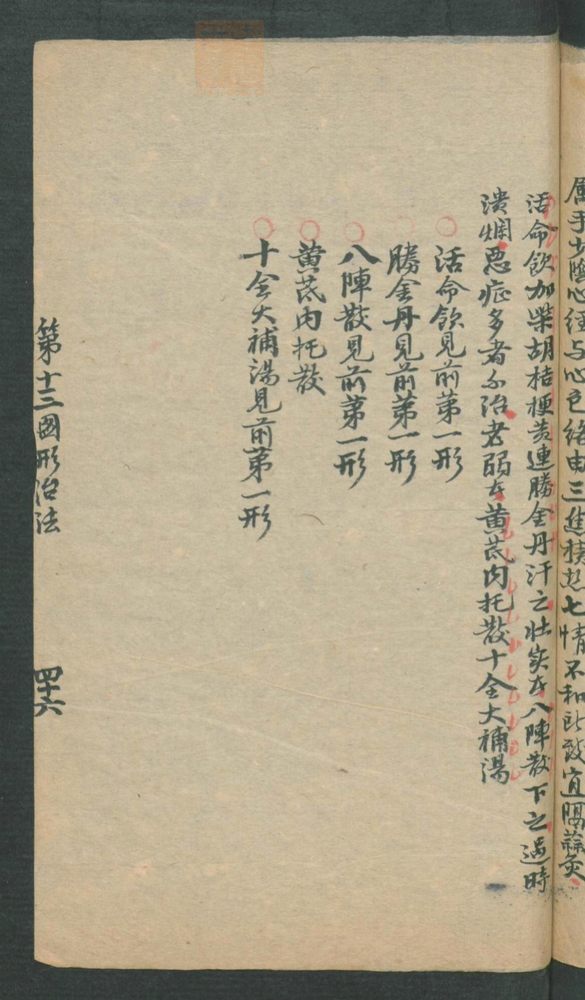 属手少陰心經与心包絡由三焦積热七情不和所致宜隔蒜灸
活命飲加柴胡桔梗黄連勝金丹汗之壮实者八陣散下之過時
潰烂恶症多者不治老弱者黄芪内托散十全大補湯
活命飲見前第一形
勝金丹見前第一形
八陣散見前第一形
黄芪内托散
十全大補湯見前第一形
第十三图形治法
四十六